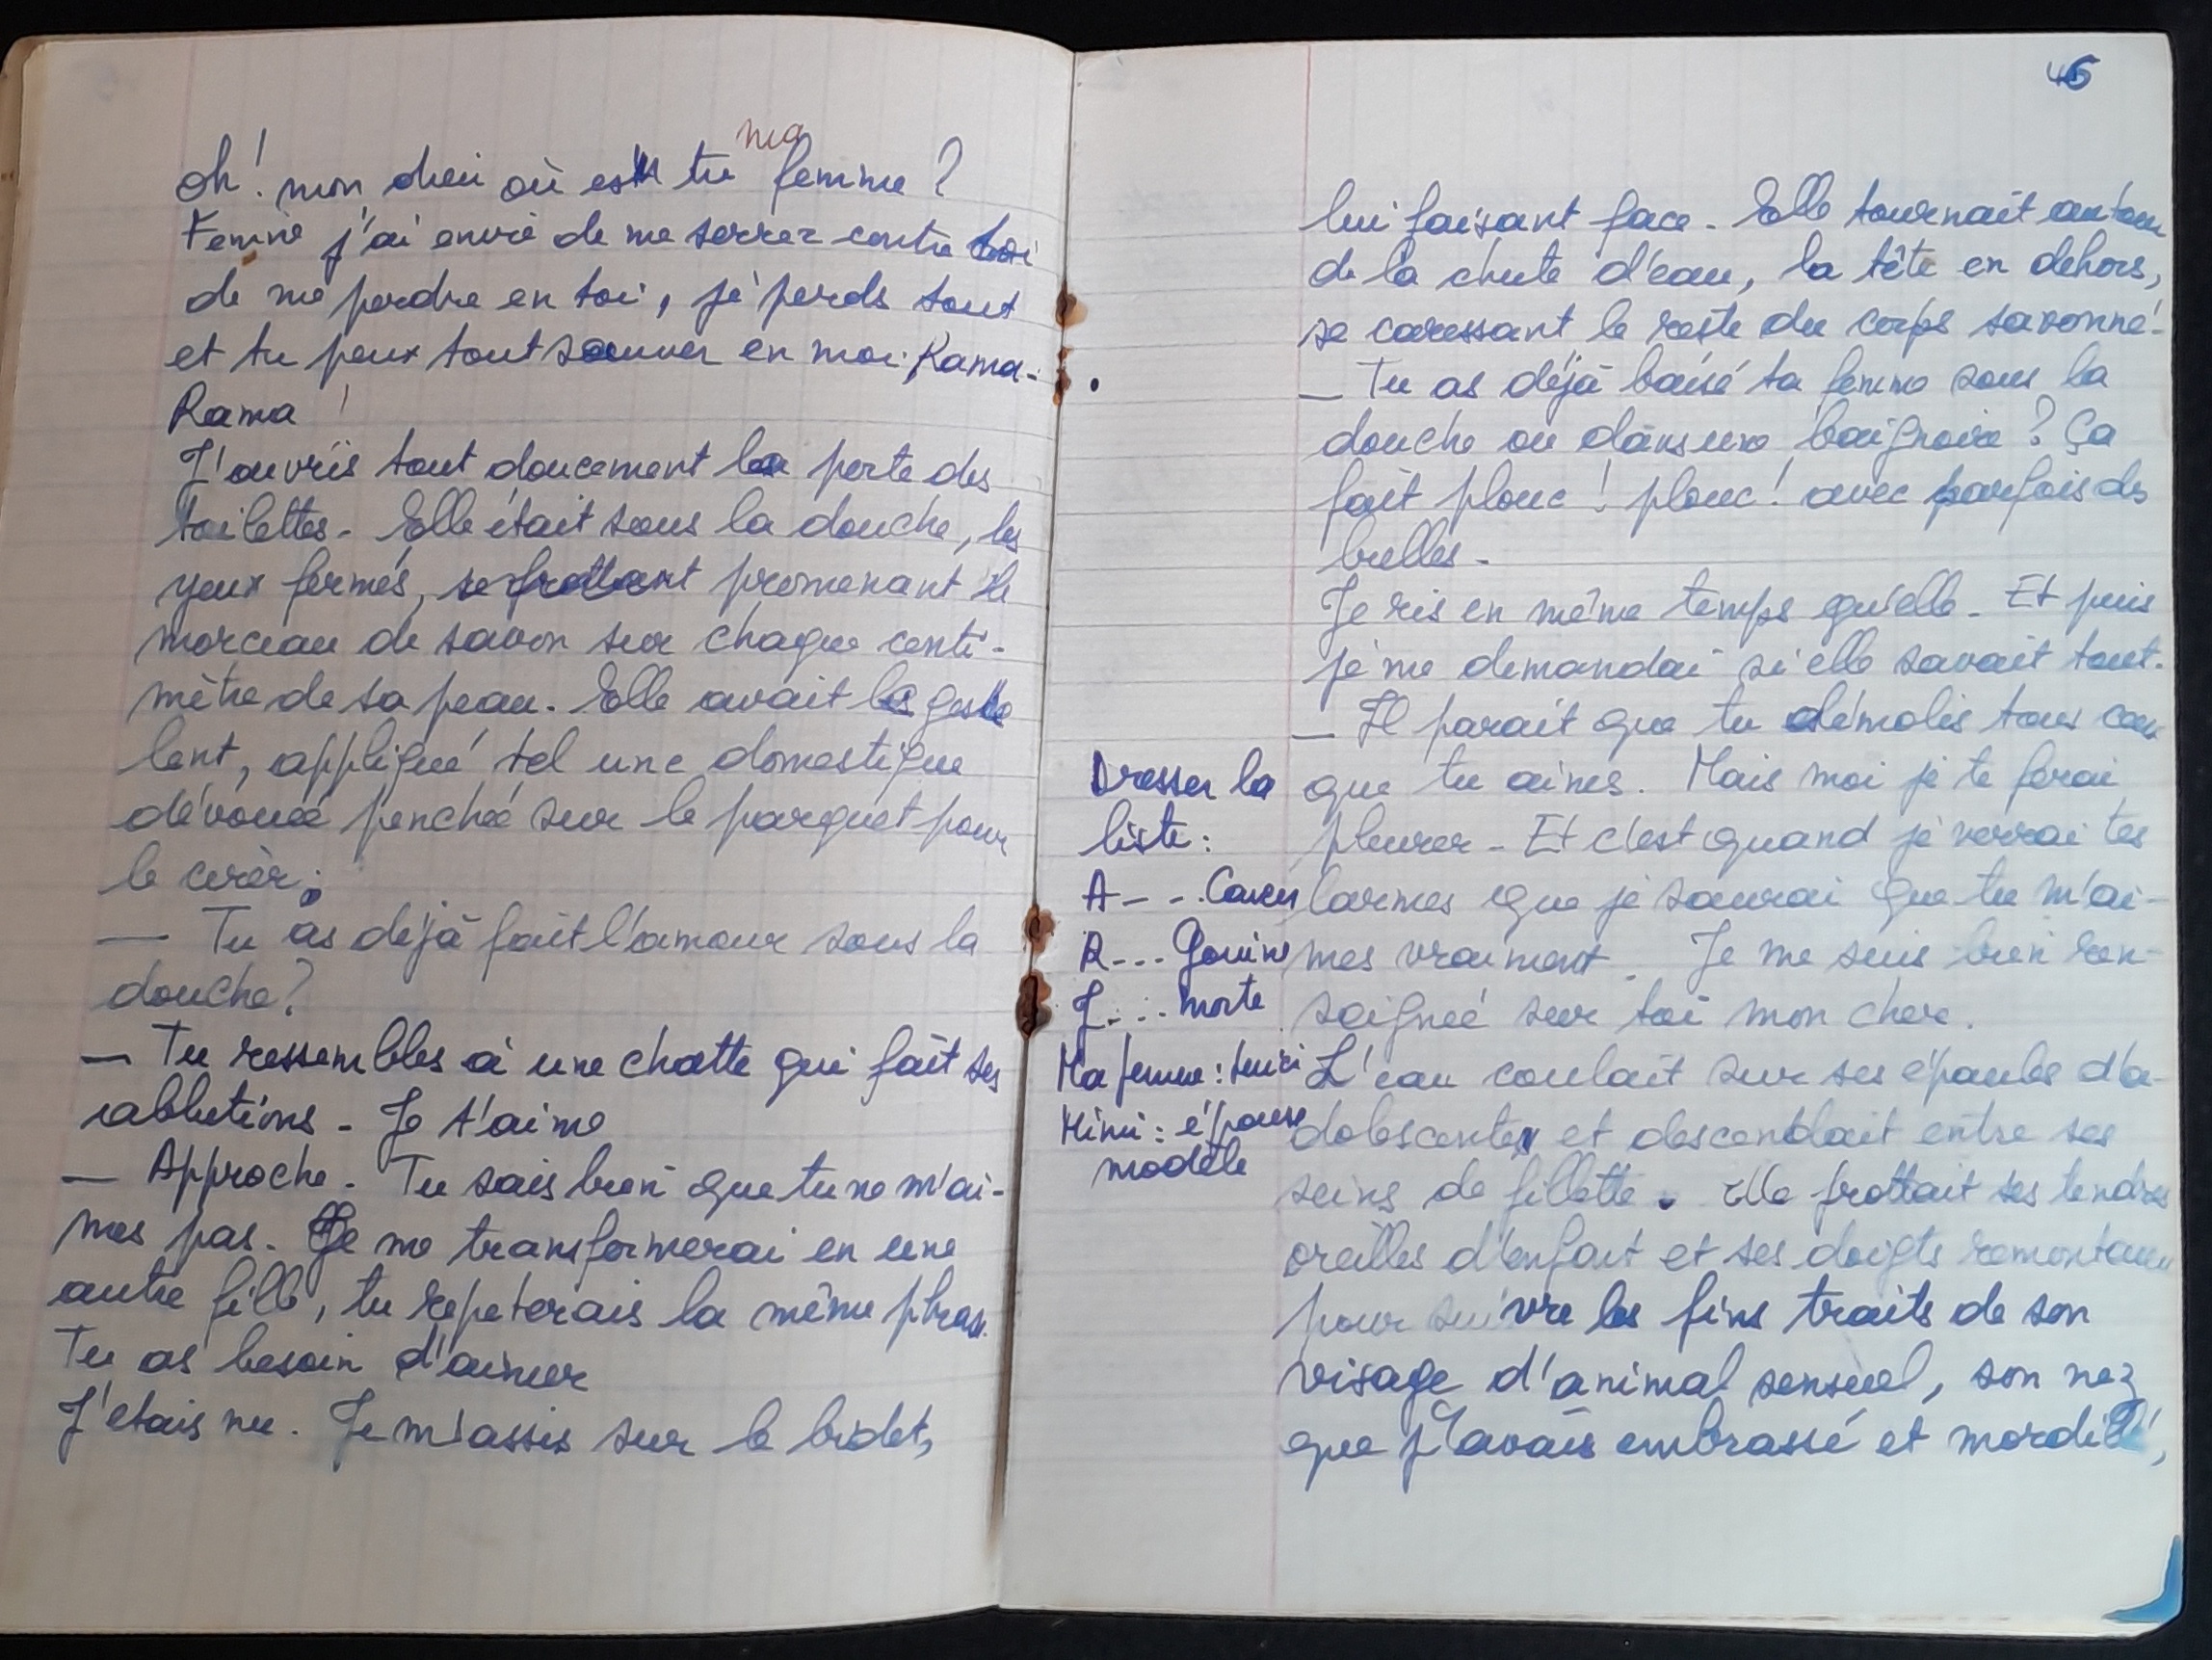 ma
oh! mon dieu où es tu femme ?
Femme j'ai envie de me serrer contre toi
de me perdre en toi, je perds tout
et tu peux tout sauver en moi. Rama-
Rama !
J'ouvris tout doucement la porte des
toilettes - Elle était sous la douche, les
yeux fermés, se frottant promenant le
morceau de savon sur chaque centi-
mètre de sa peau. Elle avait le geste
lent, appliqué tel une domestique
dévouée penchée sur le parquet pour
le cirer.
— Tu as déjà fait l'amour sous la
douche ?
— Tu ressembles à une chatte qui fait ses
ablutions - Je t'aime
— Approche - Tu sais bien que tu ne m'ai-
mes pas - Je me transformerai en une
autre fille, tu repeterais la même phrase.
Tu as besoin d'aimer
J'etais nu. Je m'assis sur le bidet,
45
lui faisant face - Elle tournait autour
de la chute d'eau, la tête en dehors,
se caressant le reste du corps savonné -
— Tu as déjà baisé ta femme sous la
douche ou dans une baignoire ? Ça
fait plouc ! plouc ! avec parfois des
bulles -
Je ris en même temps qu'elle - Et puis
je me demandai si elle savait tout.
— Il parait que tu démolis tous ceux
que tu aimes. Mais moi je te ferai
pleurer - Et c'est quand je verrai tes
larmes que je saurai que tu m'ai-
mes vraiment. Je me suis bien ren-
seignée sur toi mon cher.
L'eau coulait sur ses épaules d'a-
dolescente et descendait entre ses
seins de fillette. Elle frottait ses tendres
oreilles d'enfant et ses doigts remontaient
pour suivre les fins traits de son
visage d'animal sensuel, son nez
que j'avais embrassé et mordillé,
Dresser la
liste :
A - - . Cancer
R - - . Gouine
J . . . morte
Ma femme :
Mimi : épouse
modèle